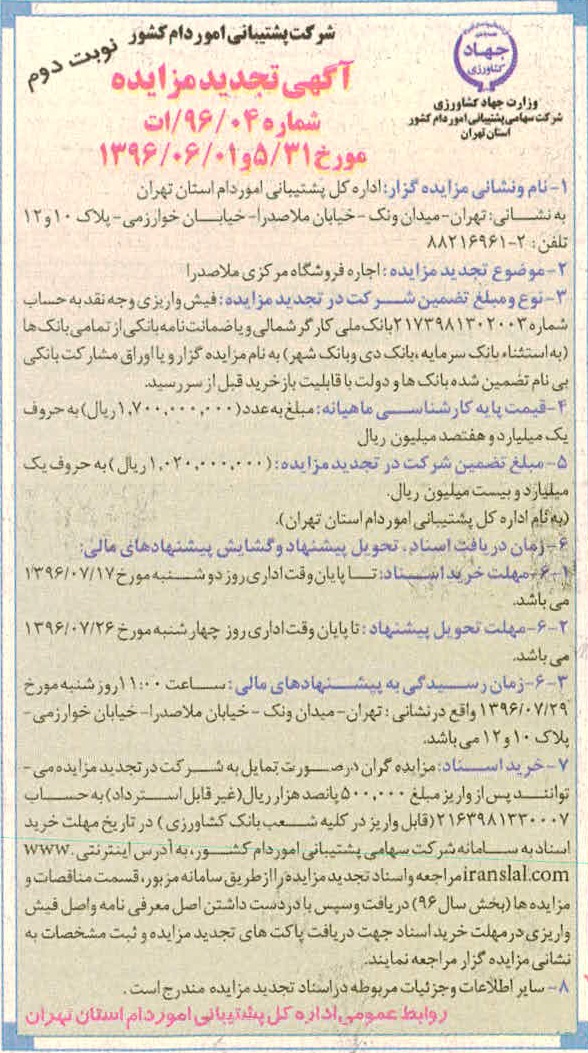 جهاد
کشاورزی
وزارت جهاد کشاورزی
شرکت سهامی پشتیبانی امور دام کشور
استان تهران
شرکت پشتیبانی امور دام کشور
نوبت دوم
آگهی تجدید مزایده
شماره ۹۶/۰۴/ات
مورخ ۵/۳۱ و ۱۳۹۶/۰۶/۰۱
۱- نام و نشانی مزایده گزار: اداره کل پشتیبانی امور دام استان تهران
به نشانی: تهران- میدان ونک - خیابان ملاصدرا- خیابان خوارزمی- پلاک ۱۰ و ۱۲
تلفن: ۲-۸۸۲۱۶۹۶۱
۲- موضوع تجدید مزایده: اجاره فروشگاه مرکزی ملاصدرا
۳- نوع و مبلغ تضمین شرکت در تجدید مزایده: فیش واریزی وجه نقد به حساب
شماره ۲۱۷۳۹۸۱۳۰۲۰۰۳ بانک ملی کارگر شمالی و یا ضمانت نامه بانکی از تمامی بانک ها
(به استثناء بانک سرمایه، بانک دی و بانک شهر) به نام مزایده گزار و یا اوراق مشارکت بانکی
بی نام تضمین شده بانک ها و دولت با قابلیت بازخرید قبل از سررسید.
۴- قیمت پایه کارشناسی ماهیانه: مبلغ به عدد (۱,۷۰۰,۰۰۰,۰۰۰ ریال) به حروف
یک میلیارد و هفتصد میلیون ریال
۵- مبلغ تضمین شرکت در تجدید مزایده: (۱,۰۲۰,۰۰۰,۰۰۰ ریال) به حروف یک
میلیارد و بیست میلیون ریال.
(به نام اداره کل پشتیبانی امور دام استان تهران).
۶- زمان دریافت اسناد، تحویل پیشنهاد و گشایش پیشنهادهای مالی:
۶-۱- مهلت خرید اسناد: تا پایان وقت اداری روز دوشنبه مورخ ۱۳۹۶/۰۷/۱۷
می باشد.
۶-۲- مهلت تحویل پیشنهاد: تا پایان وقت اداری روز چهارشنبه مورخ ۱۳۹۶/۰۷/۲۶
می باشد.
۶-۳- زمان رسیدگی به پیشنهادهای مالی: ساعت ۱۱:۰۰ روز شنبه مورخ
۱۳۹۶/۰۷/۲۹ واقع در نشانی: تهران- میدان ونک - خیابان ملاصدرا- خیابان خوارزمی-
پلاک ۱۰ و ۱۲ می باشد.
۷- خرید اسناد: مزایده گران در صورت تمایل به شرکت در تجدید مزایده می-
توانند پس از واریز مبلغ ۵۰۰,۰۰۰ پانصد هزار ریال (غیر قابل استرداد) به حساب
۲۱۶۳۹۸۱۳۳۰۰۰۷ (قابل واریز در کلیه شعب بانک کشاورزی) در تاریخ مهلت خرید
اسناد به سامانه شرکت سهامی پشتیبانی امور دام کشور، به آدرس اینترنتی www.
iranslal.com مراجعه و اسناد تجدید مزایده را از طریق سامانه مزبور، قسمت مناقصات و
مزایده ها (بخش سال ۹۶) دریافت و سپس با در دست داشتن اصل معرفی نامه و اصل فیش
واریزی در مهلت خرید اسناد جهت دریافت پاکت های تجدید مزایده و ثبت مشخصات به
نشانی مزایده گزار مراجعه نمایند.
۸- سایر اطلاعات و جزئیات مربوطه در اسناد تجدید مزایده مندرج است.
روابط عمومی اداره کل پشتیبانی امور دام استان تهران